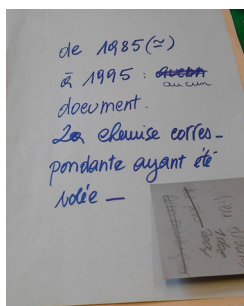 de 1985 (≃)
à 1995 : aucun
document.
La chemise corres-
pondante ayant été
volée —